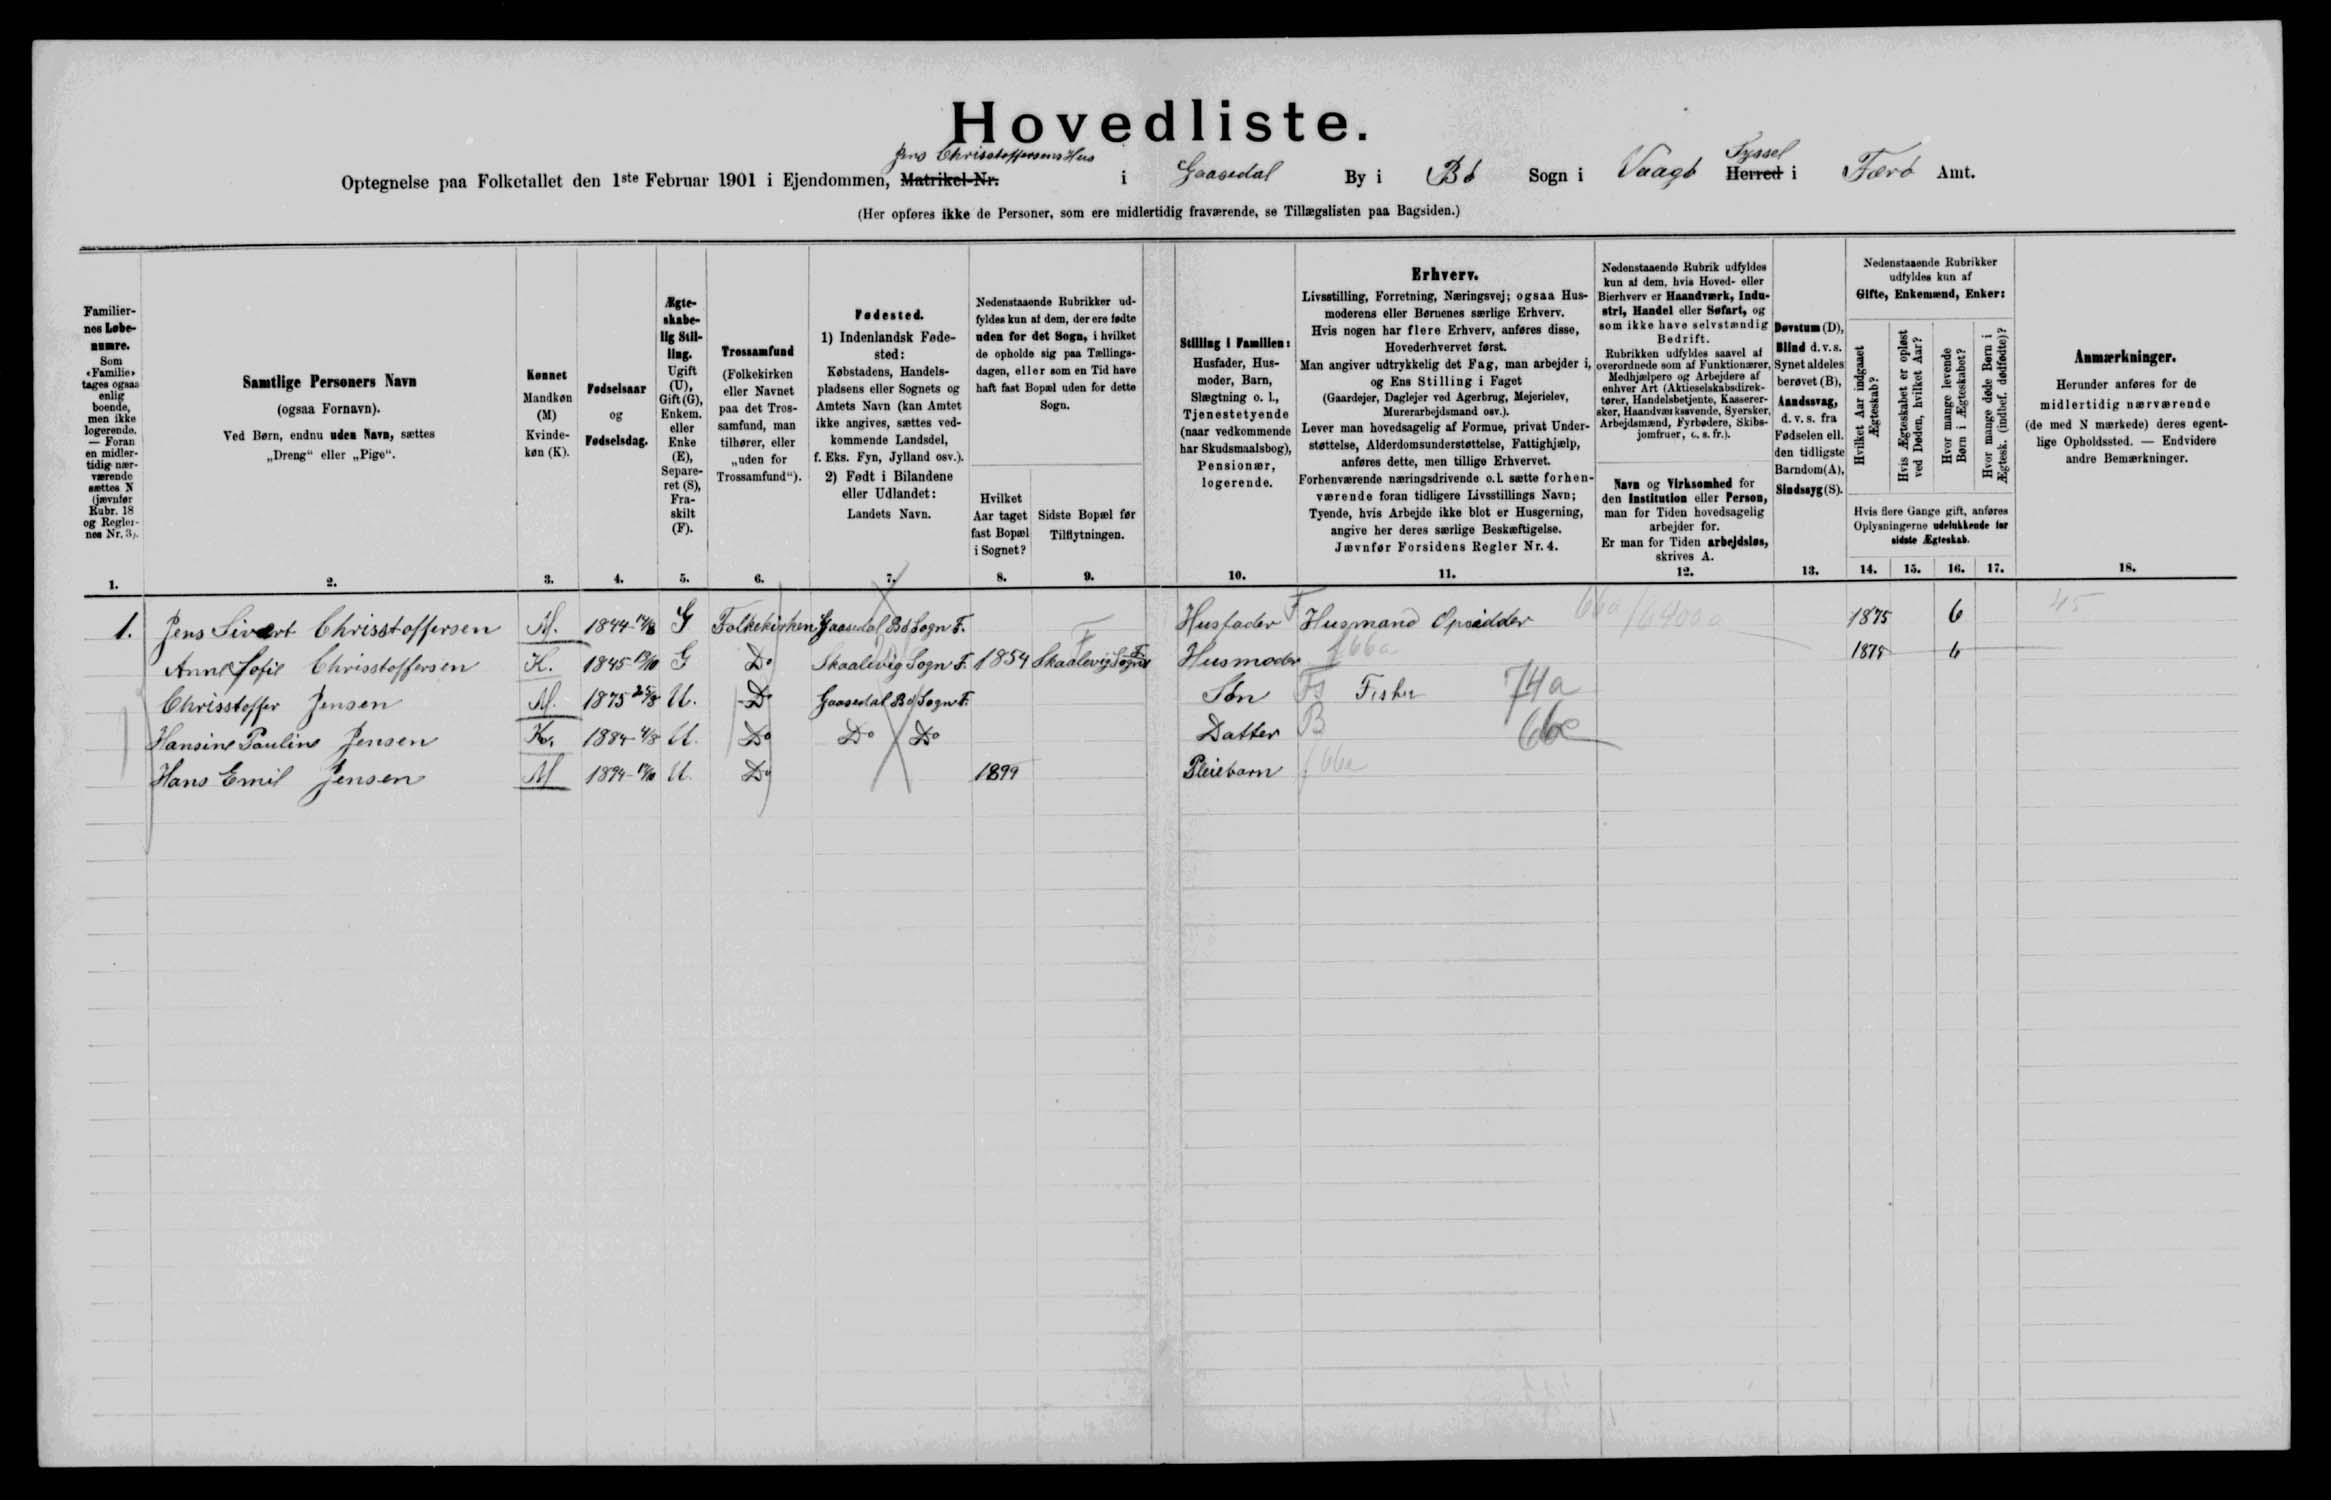 Hovedliste.
Jens Chrisstoffersens Hus
Tyssel
Optegnelse paa Folketallet den 1ste Februar 1901 i Ejendommen, Matrikel-Nr. i Gaasedal By i Bø Sogn i Vaagø Herred i Færø Amt.
(Her opføres ikke de Personer, som ere midlertidig fraværende, se Tillægslisten paa Bagsiden.)
Familiernes Løbenumre.
Som «Familie» tages ogsaa enlig boende, men ikke logerende. — Foran en midlertidig nærværende sættes N (jævnfør Rubr. 18 og Reglernes Nr. 3).
1.
Samtlige Personers Navn
(ogsaa Fornavn).
Ved Børn, endnu uden Navn, sættes
„Dreng“ eller „Pige“.
2.
Kønnet
Mandkøn (M)
Kvindekøn (K).
3.
Fødselsaar
og
Fødselsdag.
4.
Ægteskabelig Stilling.
Ugift (U), Gift (G), Enkem. eller Enke (E), Separeret (S), Fraskilt (F).
5.
Trossamfund
(Folkekirken eller Navnet paa det Trossamfund, man tilhører, eller „uden for Trossamfund“).
6.
Fødested.
1) Indenlandsk Fødested:
Købstadens, Handelspladsens eller Sognets og Amtets Navn (kan Amtet ikke angives, sættes vedkommende Landsdel, f. Eks. Fyn, Jylland osv.).
2) Født i Bilandene eller Udlandet:
Landets Navn.
7.
Nedenstaaende Rubrikker udfyldes kun af dem, der ere fødte uden for det Sogn, i hvilket de opholde sig paa Tællingsdagen, eller som en Tid have haft fast Bopæl uden for dette Sogn.
Hvilket Aar taget fast Bopæl i Sognet?
8.
Sidste Bopæl før Tilflytningen.
9.
Stilling i Familien:
Husfader, Husmoder, Barn, Slægtning o. l., Tjenestetyende (naar vedkommende har Skudsmaalsbog), Pensionær, logerende.
10.
Erhverv.
Livsstilling, Forretning, Næringsvej; ogsaa Husmoderens eller Børnenes særlige Erhverv.
Hvis nogen har flere Erhverv, anføres disse, Hovederhvervet først.
Man angiver udtrykkelig det Fag, man arbejder i, og Ens Stilling i Faget
(Gaardejer, Daglejer ved Agerbrug, Mejerielev, Murerarbejdsmand osv.).
Lever man hovedsagelig af Formue, privat Understøttelse, Alderdomsunderstøttelse, Fattighjælp, anføres dette, men tillige Erhvervet.
Forhenværende næringsdrivende o. l. sætte forhenværende foran tidligere Livsstillings Navn;
Tyende, hvis Arbejde ikke blot er Husgerning, angive her deres særlige Beskæftigelse.
Jævnfør Forsidens Regler Nr. 4.
11.
Nedenstaaende Rubrik udfyldes kun af dem, hvis Hoved- eller Bierhverv er Haandværk, Industri, Handel eller Søfart, og som ikke have selvstændig Bedrift.
Rubrikken udfyldes saavel af overordnede som af Funktionærer, Medhjælpere og Arbejdere af enhver Art (Aktieselskabsdirektører, Handelsbetjente, Kasserersker, Haandværkssvende, Syersker, Arbejdsmænd, Fyrbødere, Skibsjomfruer, o. s. fr.).
Navn og Virksomhed for den Institution eller Person, man for Tiden hovedsagelig arbejder for.
Er man for Tiden arbejdsløs, skrives A.
12.
Døvstum (D), Blind d. v. s. Synet aldeles berøvet (B), Aandssvag, d. v. s. fra Fødselen ell. den tidligste Barndom (A), Sindssyg (S).
13.
Nedenstaaende Rubrikker udfyldes kun af
Gifte, Enkemænd, Enker:
Hvilket Aar indgaaet Ægteskab?
Hvis Ægteskabet er opløst ved Døden, hvilket Aar?
Hvor mange levende Børn i Ægteskabet?
Hvor mange døde Børn i Ægtesk. (indbef. dødfødte)?
Hvis flere Gange gift, anføres Oplysningerne udelukkende for sidste Ægteskab.
14. 15. 16. 17.
Anmærkninger.
Herunder anføres for de midlertidig nærværende (de med N mærkede) deres egentlige Opholdssted. — Endvidere andre Bemærkninger.
18.
1. Jens Sivert Chrisstoffersen M. 1844 G Folkekirken Gaasedal Bø Sogn F. Husfader F Husmand Opsidder 66a 1875 6 45
Anne Sofie Chrisstoffersen K. 1845 G Do Skaalevig Sogn F. 1854 Skaalevig Sogn F Husmoder f 66a 1875 6
Chrisstoffer Jensen M. 1875 25/8 U. Do Gaasedal Bø Sogn F. Søn Fs Fisker 74a
Hansine Pauline Jensen K. 1884 4/8 U. Do Do Do Datter B 66e
Hans Emil Jensen M 1894 U. Do 1899 Pleiebarn f 66a